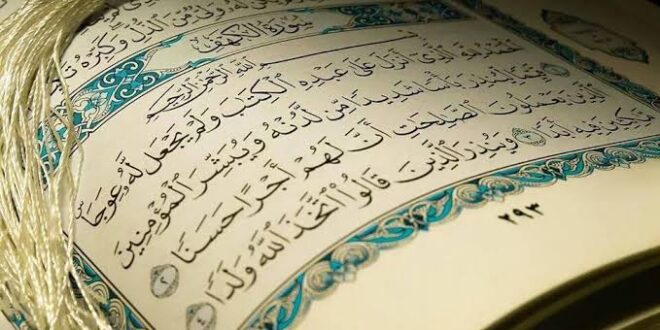 وَلِيٌّ مِّنَ ٱلذُّلِّ وَكَبِّرْهُ
سُورَةُ الكَهْفِ
بِسْمِ ٱللَّهِ ٱلرَّحْمَٰنِ ٱلرَّحِيمِ
ٱلْحَمْدُ لِلَّهِ ٱلَّذِىٓ أَنزَلَ عَلَىٰ عَبْدِهِ ٱلْكِتَٰبَ وَلَمْ يَجْعَل لَّهُۥ عِوَجَاۜ
قَيِّمًا لِّيُنذِرَ بَأْسًا شَدِيدًا مِّن لَّدُنْهُ وَيُبَشِّرَ ٱلْمُؤْمِنِينَ
ٱلَّذِينَ يَعْمَلُونَ ٱلصَّٰلِحَٰتِ أَنَّ لَهُمْ أَجْرًا حَسَنًا ٢
مَّٰكِثِينَ فِيهِ أَبَدًا ٣ وَيُنذِرَ ٱلَّذِينَ قَالُوا۟ ٱتَّخَذَ ٱللَّهُ وَلَدًا ٤
٢٩٣